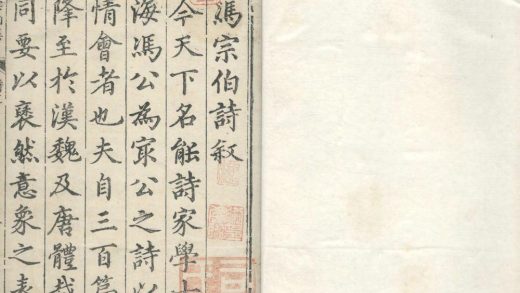 馮宗伯詩叙
今天下名能詩家學士
海馮公為宗公之詩以
情會者也夫自三百篇
降至於漢魏及唐體裁
同要以褎然意象之表